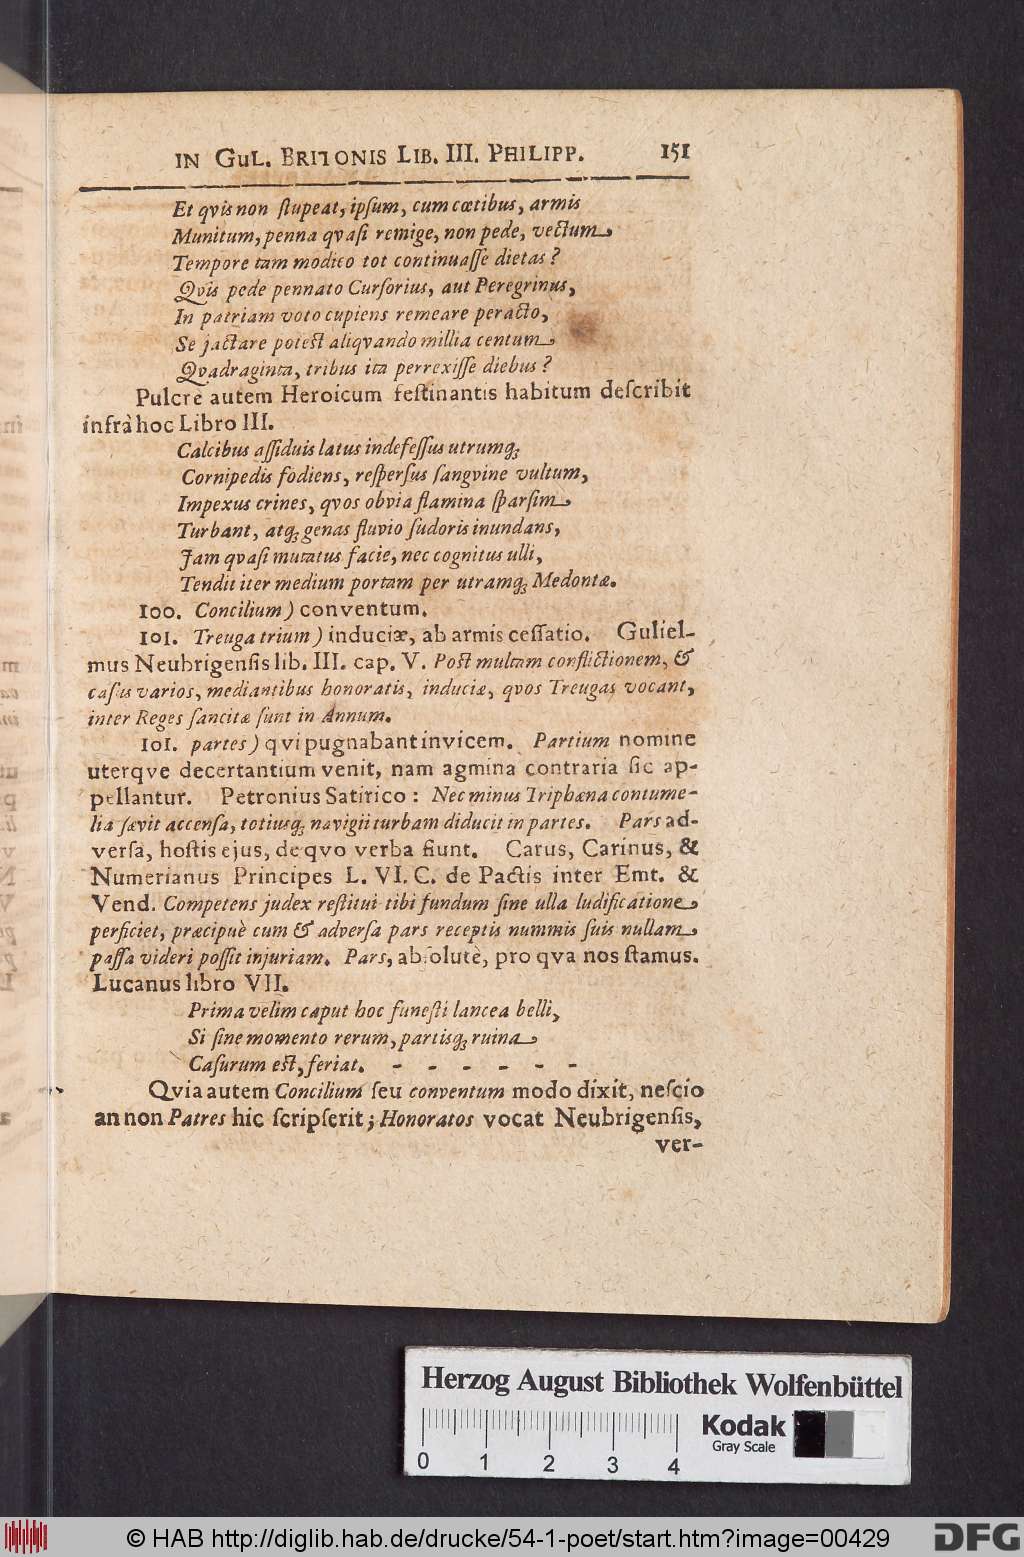 IN GUL. BRITONIS LIB. III. PHILIPP. 151
Et qvis non ſtupeat, ipſum, cum cœtibus, armis
Munitum, penna qvaſi remige, non pede, vectum
Tempore tam modico tot continuaſſe dietas?
Qvis pede pennato Curſorius, aut Peregrinus,
In patriam voto cupiens remeare peracto,
Se jactare poteſt aliqvando millia centum
Qvadraginta, tribus ita perrexiſſe diebus?
Pulcre autem Heroicum feſtinantis habitum deſcribit
infrà hoc Libro III.
Calcibus aſſiduis latus indefeſſus utrumq;
Cornipedis fodiens, reſperſus ſangvine vultum,
Impexus crines, qvos obvia flamina ſparſim
Turbant, atq; genas fluvio ſudoris inundans,
Jam qvaſi mutatus facie, nec cognitus ulli,
Tendit iter medium portam per utramq; Medontæ.
100. Concilium) conventum.
101. Treuga trium) induciæ, ab armis ceſſatio. Guliel-
mus Neubrigenſis lib. III. cap. V. Poſt multam conflictionem, &
caſus varios, mediantibus honoratis, induciæ, qvos Treugas vocant,
inter Reges ſancitæ ſunt in Annum.
101. partes) qvi pugnabant invicem. Partium nomine
uterqve decertantium venit, nam agmina contraria ſic ap-
pellantur. Petronius Satirico: Nec minus Triphæna contume-
lia ſævit accenſa, totiusq; navigii turbam diducit in partes. Pars ad-
verſa, hoſtis ejus, de qvo verba fiunt. Carus, Carinus, &
Numerianus Principes L. VI. C. de Pactis inter Emt. &
Vend. Competens judex reſtitui tibi fundum ſine ulla ludificatione
perficiet, præcipuè cum & adverſa pars receptis nummis ſuis nullam
paſſa videri poſſit injuriam. Pars, abſolutè, pro qva nos ſtamus.
Lucanus libro VII.
Prima velim caput hoc funeſti lancea belli,
Si ſine momento rerum, partisq; ruina
Caſurum eſt, feriat. - - - - - -
Qvia autem Concilium ſeu conventum modo dixit, neſcio
an non Patres hic ſcripſerit; Honoratos vocat Neubrigenſis,
ver-
Herzog August Bibliothek Wolfenbüttel
0 1 2 3 4
Kodak
Gray Scale
© HAB http://diglib.hab.de/drucke/54-1-poet/start.htm?image=00429
DFG